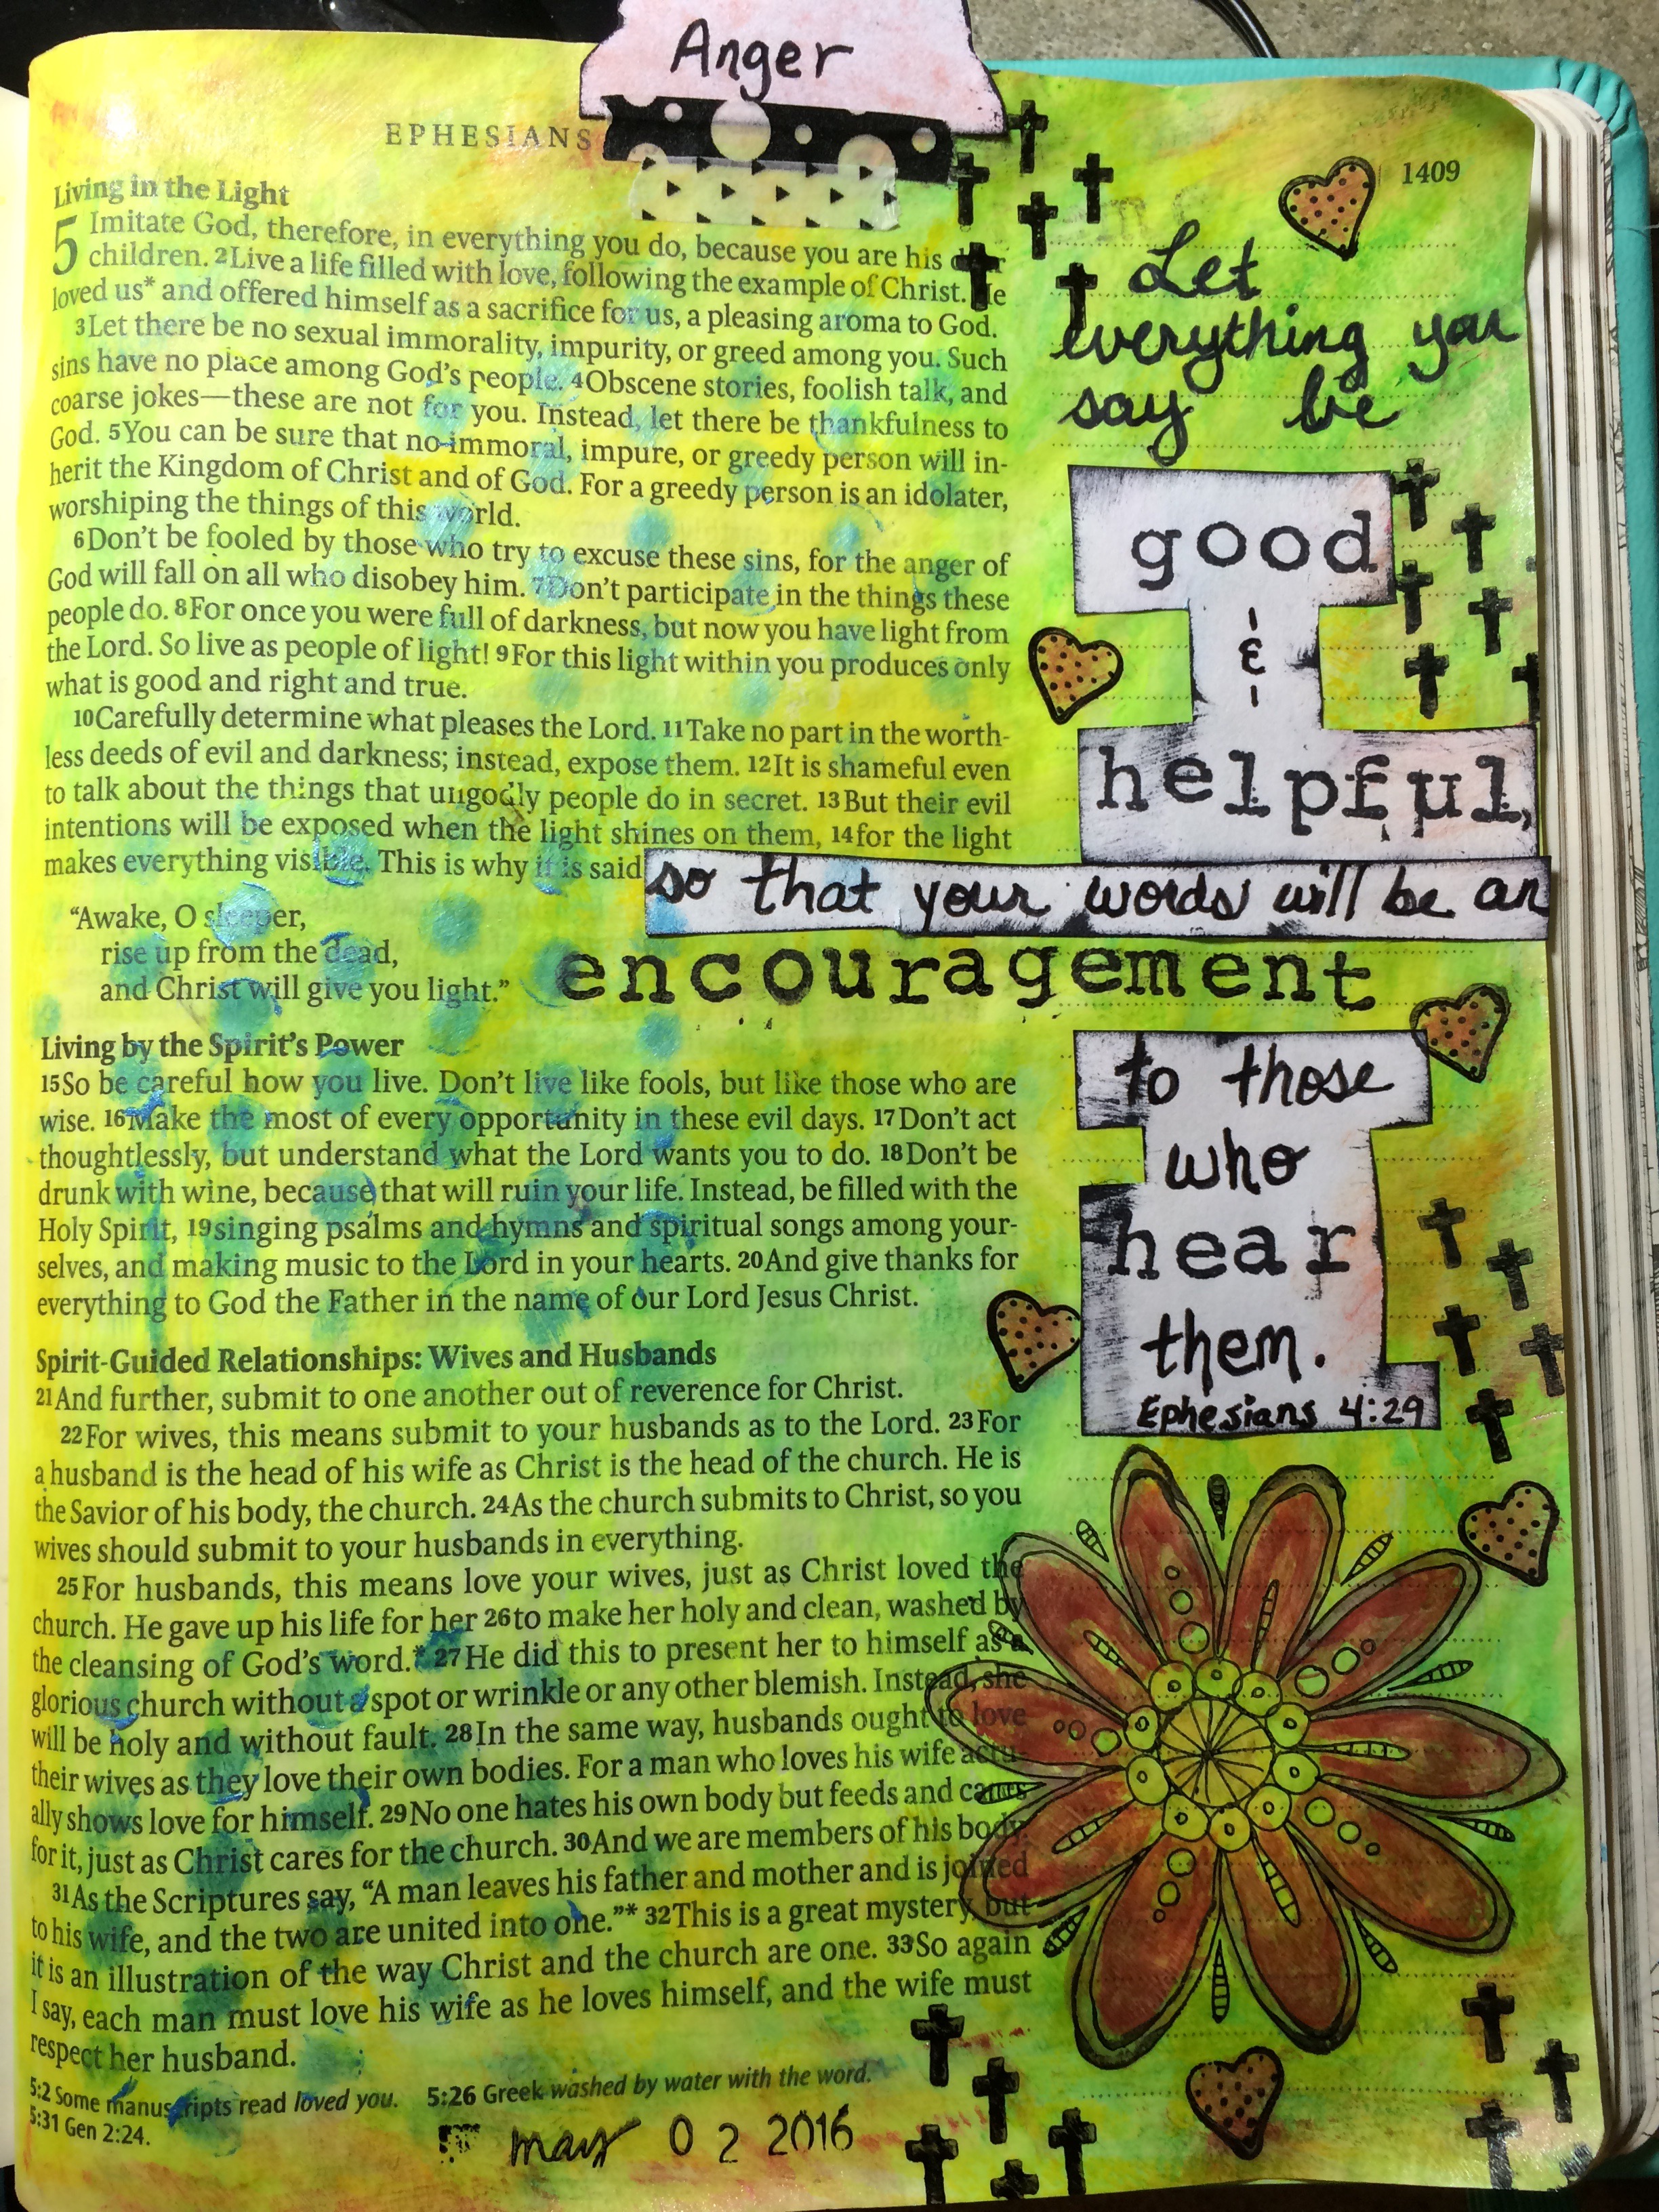 Anger
EPHESIANS
1409
Living in the Light
5 Imitate God, therefore, in everything you do, because you are his
children. 2Live a life filled with love, following the example of Christ. He
loved us* and offered himself as a sacrifice for us, a pleasing aroma to God.
3Let there be no sexual immorality, impurity, or greed among you. Such
sins have no place among God's people. 4Obscene stories, foolish talk, and
coarse jokes—these are not for you. Instead, let there be thankfulness to
God. 5You can be sure that no immoral, impure, or greedy person will in-
herit the Kingdom of Christ and of God. For a greedy person is an idolater,
worshiping the things of this world.
6Don't be fooled by those who try to excuse these sins, for the anger of
God will fall on all who disobey him. 7Don't participate in the things these
people do. 8For once you were full of darkness, but now you have light from
the Lord. So live as people of light! 9For this light within you produces only
what is good and right and true.
10Carefully determine what pleases the Lord. 11Take no part in the worth-
less deeds of evil and darkness; instead, expose them. 12It is shameful even
to talk about the things that ungodly people do in secret. 13But their evil
intentions will be exposed when the light shines on them, 14for the light
makes everything visible. This is why it is said
"Awake, O sleeper,
rise up from the dead,
and Christ will give you light."
Living by the Spirit's Power
15So be careful how you live. Don't live like fools, but like those who are
wise. 16Make the most of every opportunity in these evil days. 17Don't act
thoughtlessly, but understand what the Lord wants you to do. 18Don't be
drunk with wine, because that will ruin your life. Instead, be filled with the
Holy Spirit, 19singing psalms and hymns and spiritual songs among your-
selves, and making music to the Lord in your hearts. 20And give thanks for
everything to God the Father in the name of our Lord Jesus Christ.
Spirit-Guided Relationships: Wives and Husbands
21And further, submit to one another out of reverence for Christ.
22For wives, this means submit to your husbands as to the Lord. 23For
a husband is the head of his wife as Christ is the head of the church. He is
the Savior of his body, the church. 24As the church submits to Christ, so you
wives should submit to your husbands in everything.
25For husbands, this means love your wives, just as Christ loved the
church. He gave up his life for her 26to make her holy and clean, washed by
the cleansing of God's word.* 27He did this to present her to himself as a
glorious church without a spot or wrinkle or any other blemish. Instead, she
will be holy and without fault. 28In the same way, husbands ought to love
their wives as they love their own bodies. For a man who loves his wife actu-
ally shows love for himself. 29No one hates his own body but feeds and cares
for it, just as Christ cares for the church. 30And we are members of his body.
31As the Scriptures say, "A man leaves his father and mother and is joined
to his wife, and the two are united into one."* 32This is a great mystery, but
it is an illustration of the way Christ and the church are one. 33So again
I say, each man must love his wife as he loves himself, and the wife must
respect her husband.
5:2 Some manuscripts read loved you. 5:26 Greek washed by water with the word.
5:31 Gen 2:24.
may 02 2016
Let
everything you
say be
good
&
helpful,
so that your words will be an
encouragement
to those
who
hear
them.
Ephesians 4:29